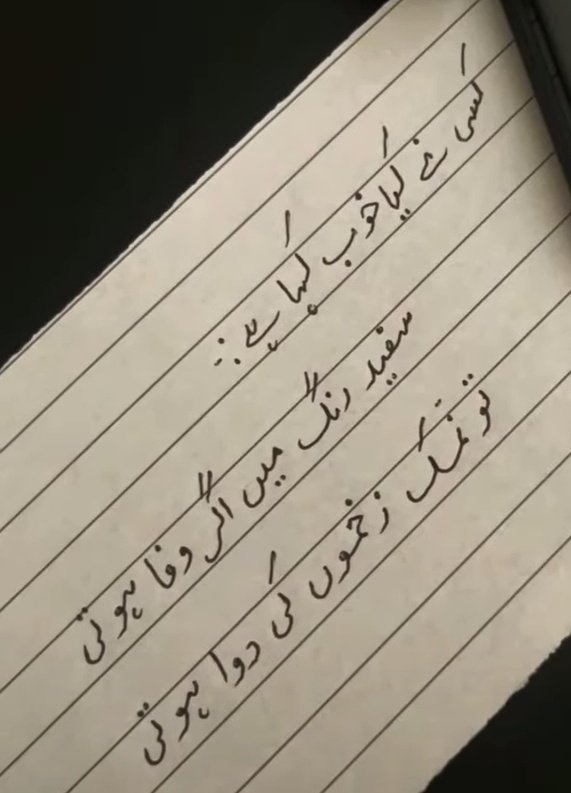 کسی نے کیا خوب کہا ہے:-
سفید رنگ میں اگر وفا ہوتی
تو نمک زخموں کی دوا ہوتی